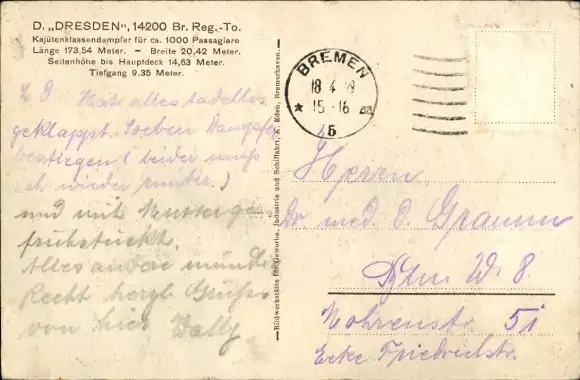 D. „DRESDEN“, 14200 Br. Reg.-To.
Kajütenklassendampfer für ca. 1000 Passagiere
Länge 173,54 Meter. – Breite 20,42 Meter.
Seitenhöhe bis Hauptdeck 14,63 Meter.
Tiefgang 9.35 Meter.
Hat alles tadellos
geklappt. Soeben Dampfer
bestiegen (leider muß
ich wieder runter.)
und mit Mutter ge-
frühstückt.
Alles andere mündl.
Recht herzl. Grüße
von hier Wally
Bildwerkstätte für Gewerbe, Industrie und Schiffahrt, K. Eden, Bremerhaven.
BREMEN
18 4
15-16
5
Herrn
Dr med.
Bln W. 8
Mohrenstr. 51
Ecke Friedrichstr.